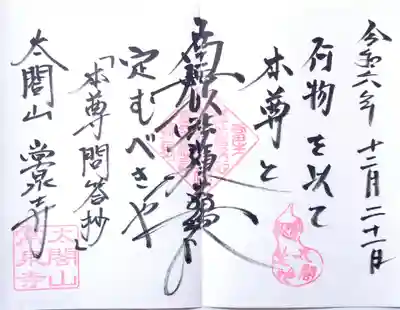 令和六年十二月二十一日
何物を以て
本尊と
南無妙法蓮華経
定むべきや
「本尊問答抄」
太閤山 常泉寺
太閤山
常泉寺